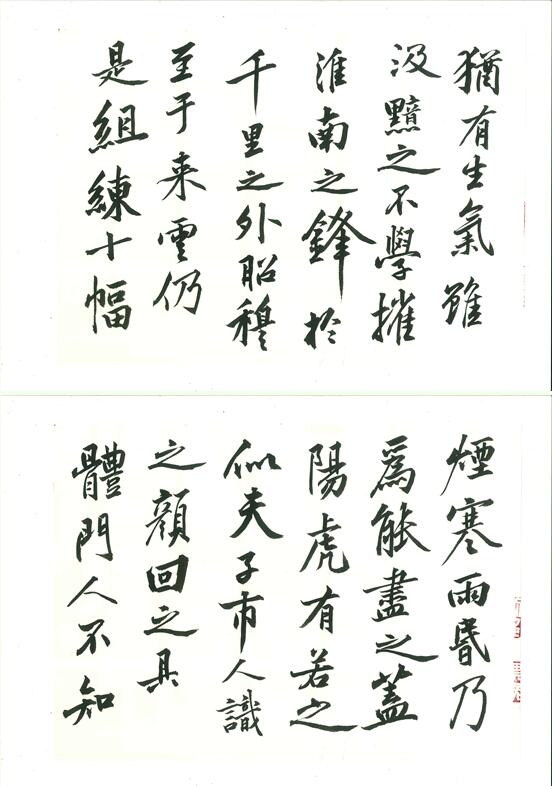 猶有生氣雖
汲黯之不學摧
淮南之鋒於
千里之外昭穆
至于来雲仍
是組練十幅
煙寒雨昬乃
爲能盡之蓋
陽虎有若之
似夫子市人識
之顏回之具
體門人不知